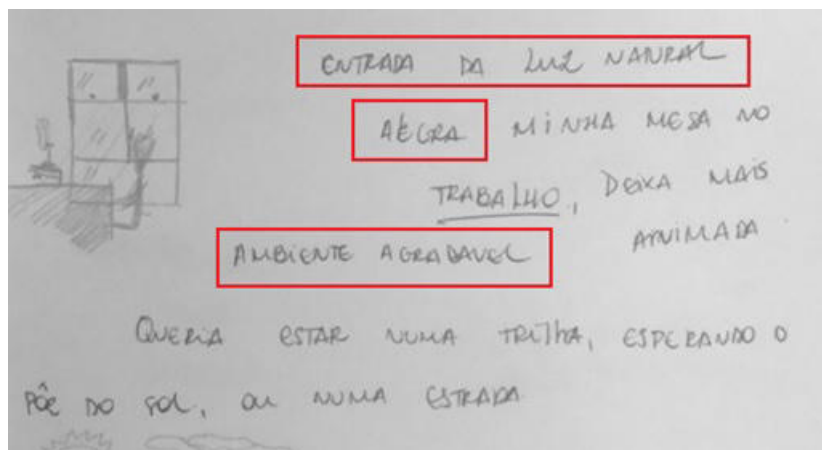 ENTRADA DA LUZ NATURAL
ALEGRA MINHA MESA NO
TRABALHO, DEIXA MAIS
ANIMADA
AMBIENTE AGRADAVEL
QUERIA ESTAR NUMA TRILHA, ESPERANDO O
PÔE DO SOL, OU NUMA ESTRADA